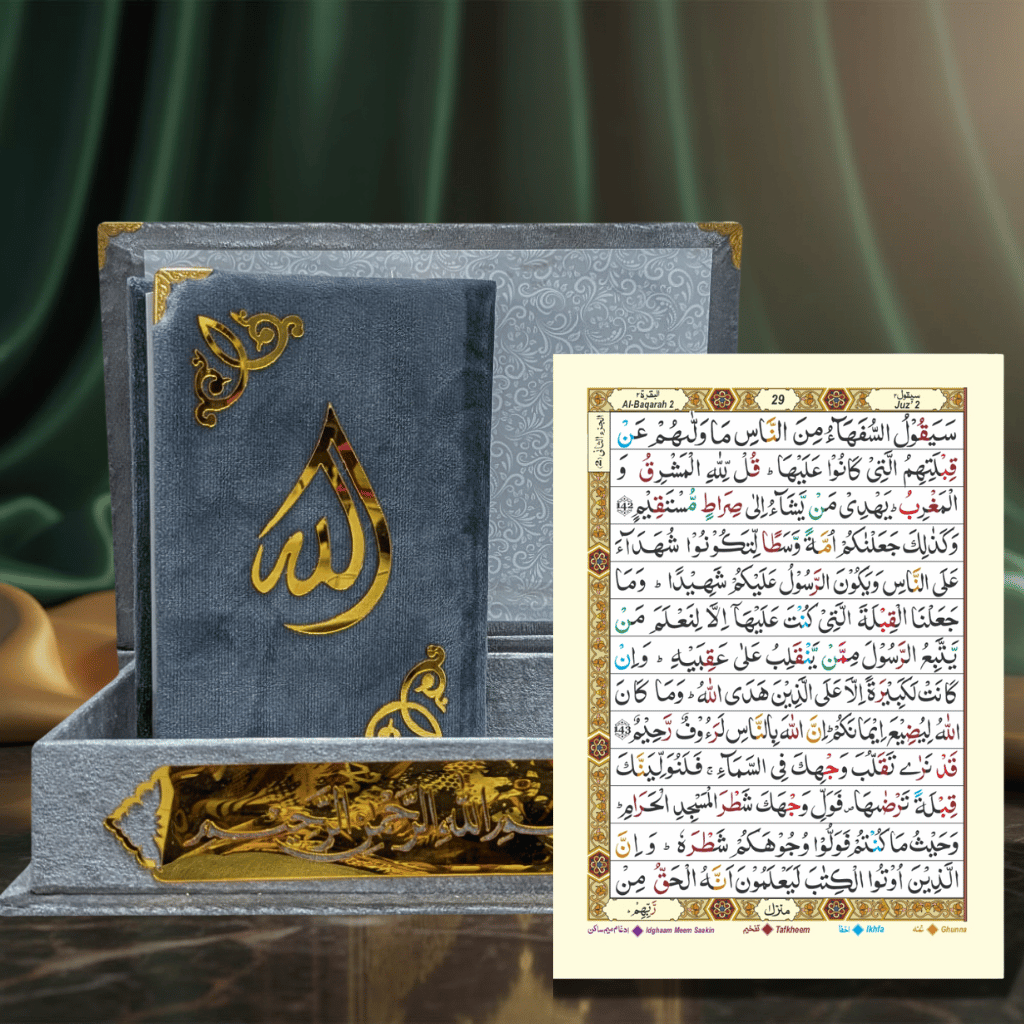 الله
بسم الله الرحمن الرحيم
البقرة ٢
Al-Baqarah 2
29
سيقول ٢
Juz' 2
الجزء الثاني (2)
سَيَقُوْلُ السُّفَهَآءُ مِنَ النَّاسِ مَا وَلّٰىهُمْ عَنْ
قِبْلَتِهِمُ الَّتِيْ كَانُوْا عَلَيْهَا ؕ قُلْ لِّلّٰهِ الْمَشْرِقُ وَ
الْمَغْرِبُ ؕ يَهْدِيْ مَنْ يَّشَآءُ اِلٰى صِرَاطٍ مُّسْتَقِيْمٍ 142
وَكَذٰلِكَ جَعَلْنٰكُمْ اُمَّةً وَّسَطًا لِّتَكُوْنُوْا شُهَدَآءَ
عَلَى النَّاسِ وَيَكُوْنَ الرَّسُوْلُ عَلَيْكُمْ شَهِيْدًا ؕ وَمَا
جَعَلْنَا الْقِبْلَةَ الَّتِيْ كُنْتَ عَلَيْهَآ اِلَّا لِنَعْلَمَ مَنْ
يَّتَّبِعُ الرَّسُوْلَ مِمَّنْ يَّنْقَلِبُ عَلٰى عَقِبَيْهِ ؕ وَاِنْ
كَانَتْ لَكَبِيْرَةً اِلَّا عَلَى الَّذِيْنَ هَدَى اللّٰهُ ؕ وَمَا كَانَ
اللّٰهُ لِيُضِيْعَ اِيْمَانَكُمْ ؕ اِنَّ اللّٰهَ بِالنَّاسِ لَرَءُوْفٌ رَّحِيْمٌ 143
قَدْ نَرٰى تَقَلُّبَ وَجْهِكَ فِي السَّمَآءِ ۚ فَلَنُوَلِّيَنَّكَ
قِبْلَةً تَرْضٰىهَا ۪ فَوَلِّ وَجْهَكَ شَطْرَ الْمَسْجِدِ الْحَرَامِ ؕ
وَحَيْثُ مَا كُنْتُمْ فَوَلُّوْا وُجُوْهَكُمْ شَطْرَهٗ ؕ وَاِنَّ
الَّذِيْنَ اُوْتُوا الْكِتٰبَ لَيَعْلَمُوْنَ اَنَّهُ الْحَقُّ مِنْ
رَّبِّهِمْ ؕ
منزل
ادغام میم ساکن Idghaam Meem Saakin
تفخیم Tafkheem
اخفا Ikhfa
غنه Ghunna